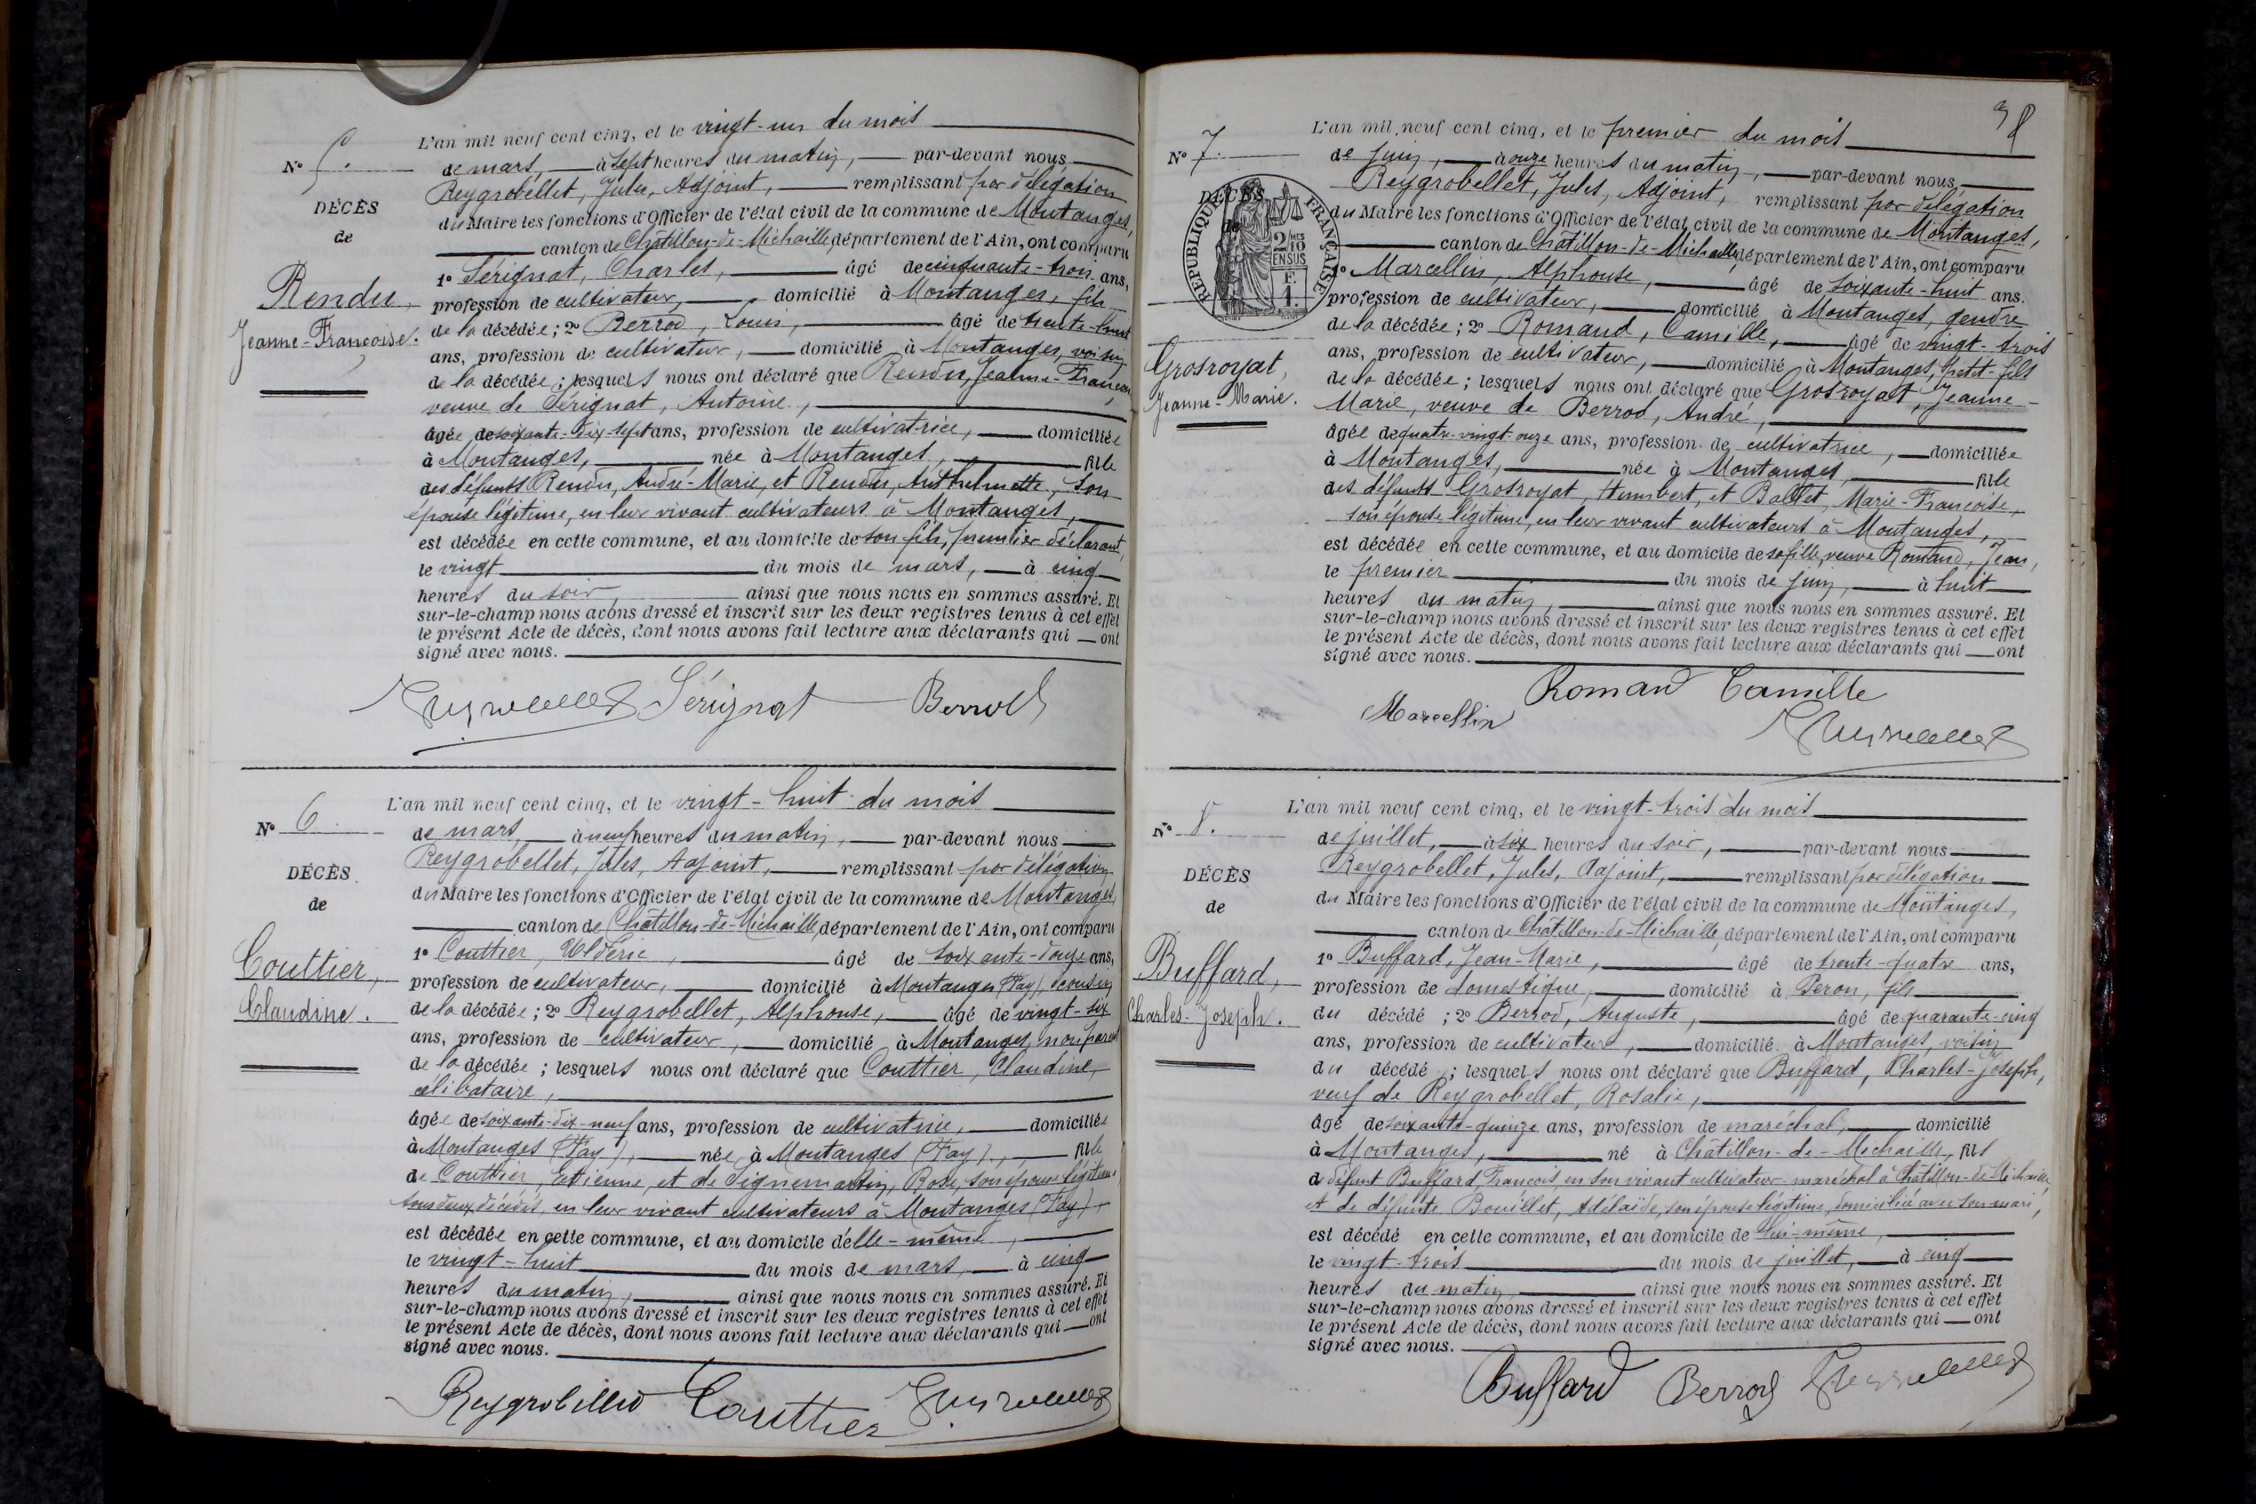 N° 5.
DÉCÈS
de
Rendu,
Jeanne-Françoise.
L'an mil neuf cent cinq, et le vingt-un du mois
de mars, à sept heures du matin, par-devant nous
Reygrobellet, Jules, Adjoint, remplissant par délégation
du Maire les fonctions d'Officier de l'état civil de la commune de Montanges,
canton de Châtillon-de-Michaille, département de l'Ain, ont comparu
1° Sérignat, Charles, âgé de cinquante-trois ans,
profession de cultivateur, domicilié à Montanges, fils
de la décédée ; 2° Berrod, Louis, âgé de trente-huit
ans, profession de cultivateur, domicilié à Montanges, voisin
de la décédée ; lesquels nous ont déclaré que Rendu, Jeanne-Françoise,
veuve de Sérignat, Antoine,
âgée de soixante-dix-sept ans, profession de cultivatrice, domiciliée
à Montanges, née à Montanges, fille
des défunts Rendu, André-Marie, et Rendu, Anthelmette, son
épouse légitime, en leur vivant cultivateurs à Montanges,
est décédée en cette commune, et au domicile de son fils, premier déclarant,
le vingt du mois de mars, à cinq
heures du soir, ainsi que nous nous en sommes assuré. Et
sur-le-champ nous avons dressé et inscrit sur les deux registres tenus à cet effet
le présent Acte de décès, dont nous avons fait lecture aux déclarants qui ont
signé avec nous.
Sérignat Berrod
N° 6.
DÉCÈS
de
Couttier,
Claudine.
L'an mil neuf cent cinq, et le vingt-huit du mois
de mars, à neuf heures du matin, par-devant nous
Reygrobellet, Jules, Adjoint, remplissant par délégation
du Maire les fonctions d'Officier de l'état civil de la commune de Montanges,
canton de Châtillon-de-Michaille, département de l'Ain, ont comparu
1° Couttier, Uldéric, âgé de soixante-douze ans,
profession de cultivateur, domicilié à Montanges (Fay), cousin
de la décédée ; 2° Reygrobellet, Alphonse, âgé de vingt-six
ans, profession de cultivateur, domicilié à Montanges, non parent
de la décédée ; lesquels nous ont déclaré que Couttier, Claudine,
célibataire,
âgée de soixante-dix-neuf ans, profession de cultivatrice, domiciliée
à Montanges (Fay), née à Montanges (Fay), fille
de Couttier, Etienne, et de Signemartin, Rose, son épouse légitime,
tous deux décédés, en leur vivant cultivateurs à Montanges (Fay),
est décédée en cette commune, et au domicile d'elle-même,
le vingt-huit du mois de mars, à cinq
heures du matin, ainsi que nous nous en sommes assuré. Et
sur-le-champ nous avons dressé et inscrit sur les deux registres tenus à cet effet
le présent Acte de décès, dont nous avons fait lecture aux déclarants qui ont
signé avec nous.
Reygrobellet Couttier
38
N° 7.
DÉCÈS
de
RÉPUBLIQUE FRANÇAISE
2/10MES
EN SUS
F.
1.
Grosroyat,
Jeanne-Marie.
L'an mil neuf cent cinq, et le premier du mois
de juin, à onze heures du matin, par-devant nous
Reygrobellet, Jules, Adjoint, remplissant par délégation
du Maire les fonctions d'Officier de l'état civil de la commune de Montanges,
canton de Châtillon-de-Michaille, département de l'Ain, ont comparu
1° Marcellin, Alphonse, âgé de soixante-huit ans.
profession de cultivateur, domicilié à Montanges, gendre
de la décédée ; 2° Romand, Camille, âgé de vingt-trois
ans, profession de cultivateur, domicilié à Montanges, petit-fils
de la décédée ; lesquels nous ont déclaré que Grosroyat, Jeanne-
Marie, veuve de Berrod, André,
âgée de quatre-vingt-onze ans, profession de cultivatrice, domiciliée
à Montanges, née à Montanges, fille
des défunts Grosroyat, Humbert, et Ballet, Marie-Françoise,
son épouse légitime, en leur vivant cultivateurs à Montanges,
est décédée en cette commune, et au domicile de sa fille, veuve Romand, Jean,
le premier du mois de juin, à huit
heures du matin, ainsi que nous nous en sommes assuré. Et
sur-le-champ nous avons dressé et inscrit sur les deux registres tenus à cet effet
le présent Acte de décès, dont nous avons fait lecture aux déclarants qui ont
signé avec nous.
Romand Camille
Marcellin
N° 8.
DÉCÈS
de
Buffard,
Charles-Joseph.
L'an mil neuf cent cinq, et le vingt-trois du mois
de juillet, à six heures du soir, par-devant nous
Reygrobellet, Jules, Adjoint, remplissant par délégation
du Maire les fonctions d'Officier de l'état civil de la commune de Montanges,
canton de Châtillon-de-Michaille, département de l'Ain, ont comparu
1° Buffard, Jean-Marie, âgé de trente-quatre ans,
profession de domestique, domicilié à Péron, fils
du décédé ; 2° Berrod, Auguste, âgé de quarante-cinq
ans, profession de cultivateur, domicilié à Montanges, voisin
du décédé ; lesquels nous ont déclaré que Buffard, Charles-Joseph,
veuf de Reygrobellet, Rosalie,
âgé de soixante-quinze ans, profession de maréchal, domicilié
à Montanges, né à Châtillon-de-Michaille, fils
de défunt Buffard, François, en son vivant cultivateur-maréchal à Châtillon-de-Michaille,
et de défunte Bouillet, Adélaïde, son épouse légitime, domiciliée avec son mari,
est décédé en cette commune, et au domicile de lui-même,
le vingt-trois du mois de juillet, à cinq
heures du matin, ainsi que nous nous en sommes assuré. Et
sur-le-champ nous avons dressé et inscrit sur les deux registres tenus à cet effet
le présent Acte de décès, dont nous avons fait lecture aux déclarants qui ont
signé avec nous.
Buffard Berrod